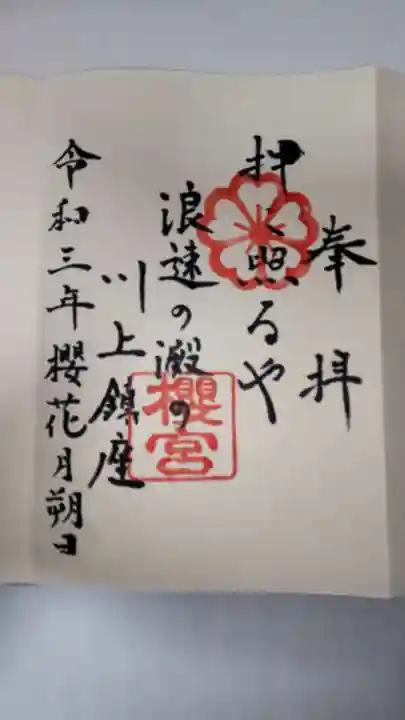 奉拝
押し照るや
浪速の澱の
川上鎮座
令和三年櫻花月朔日
櫻宮